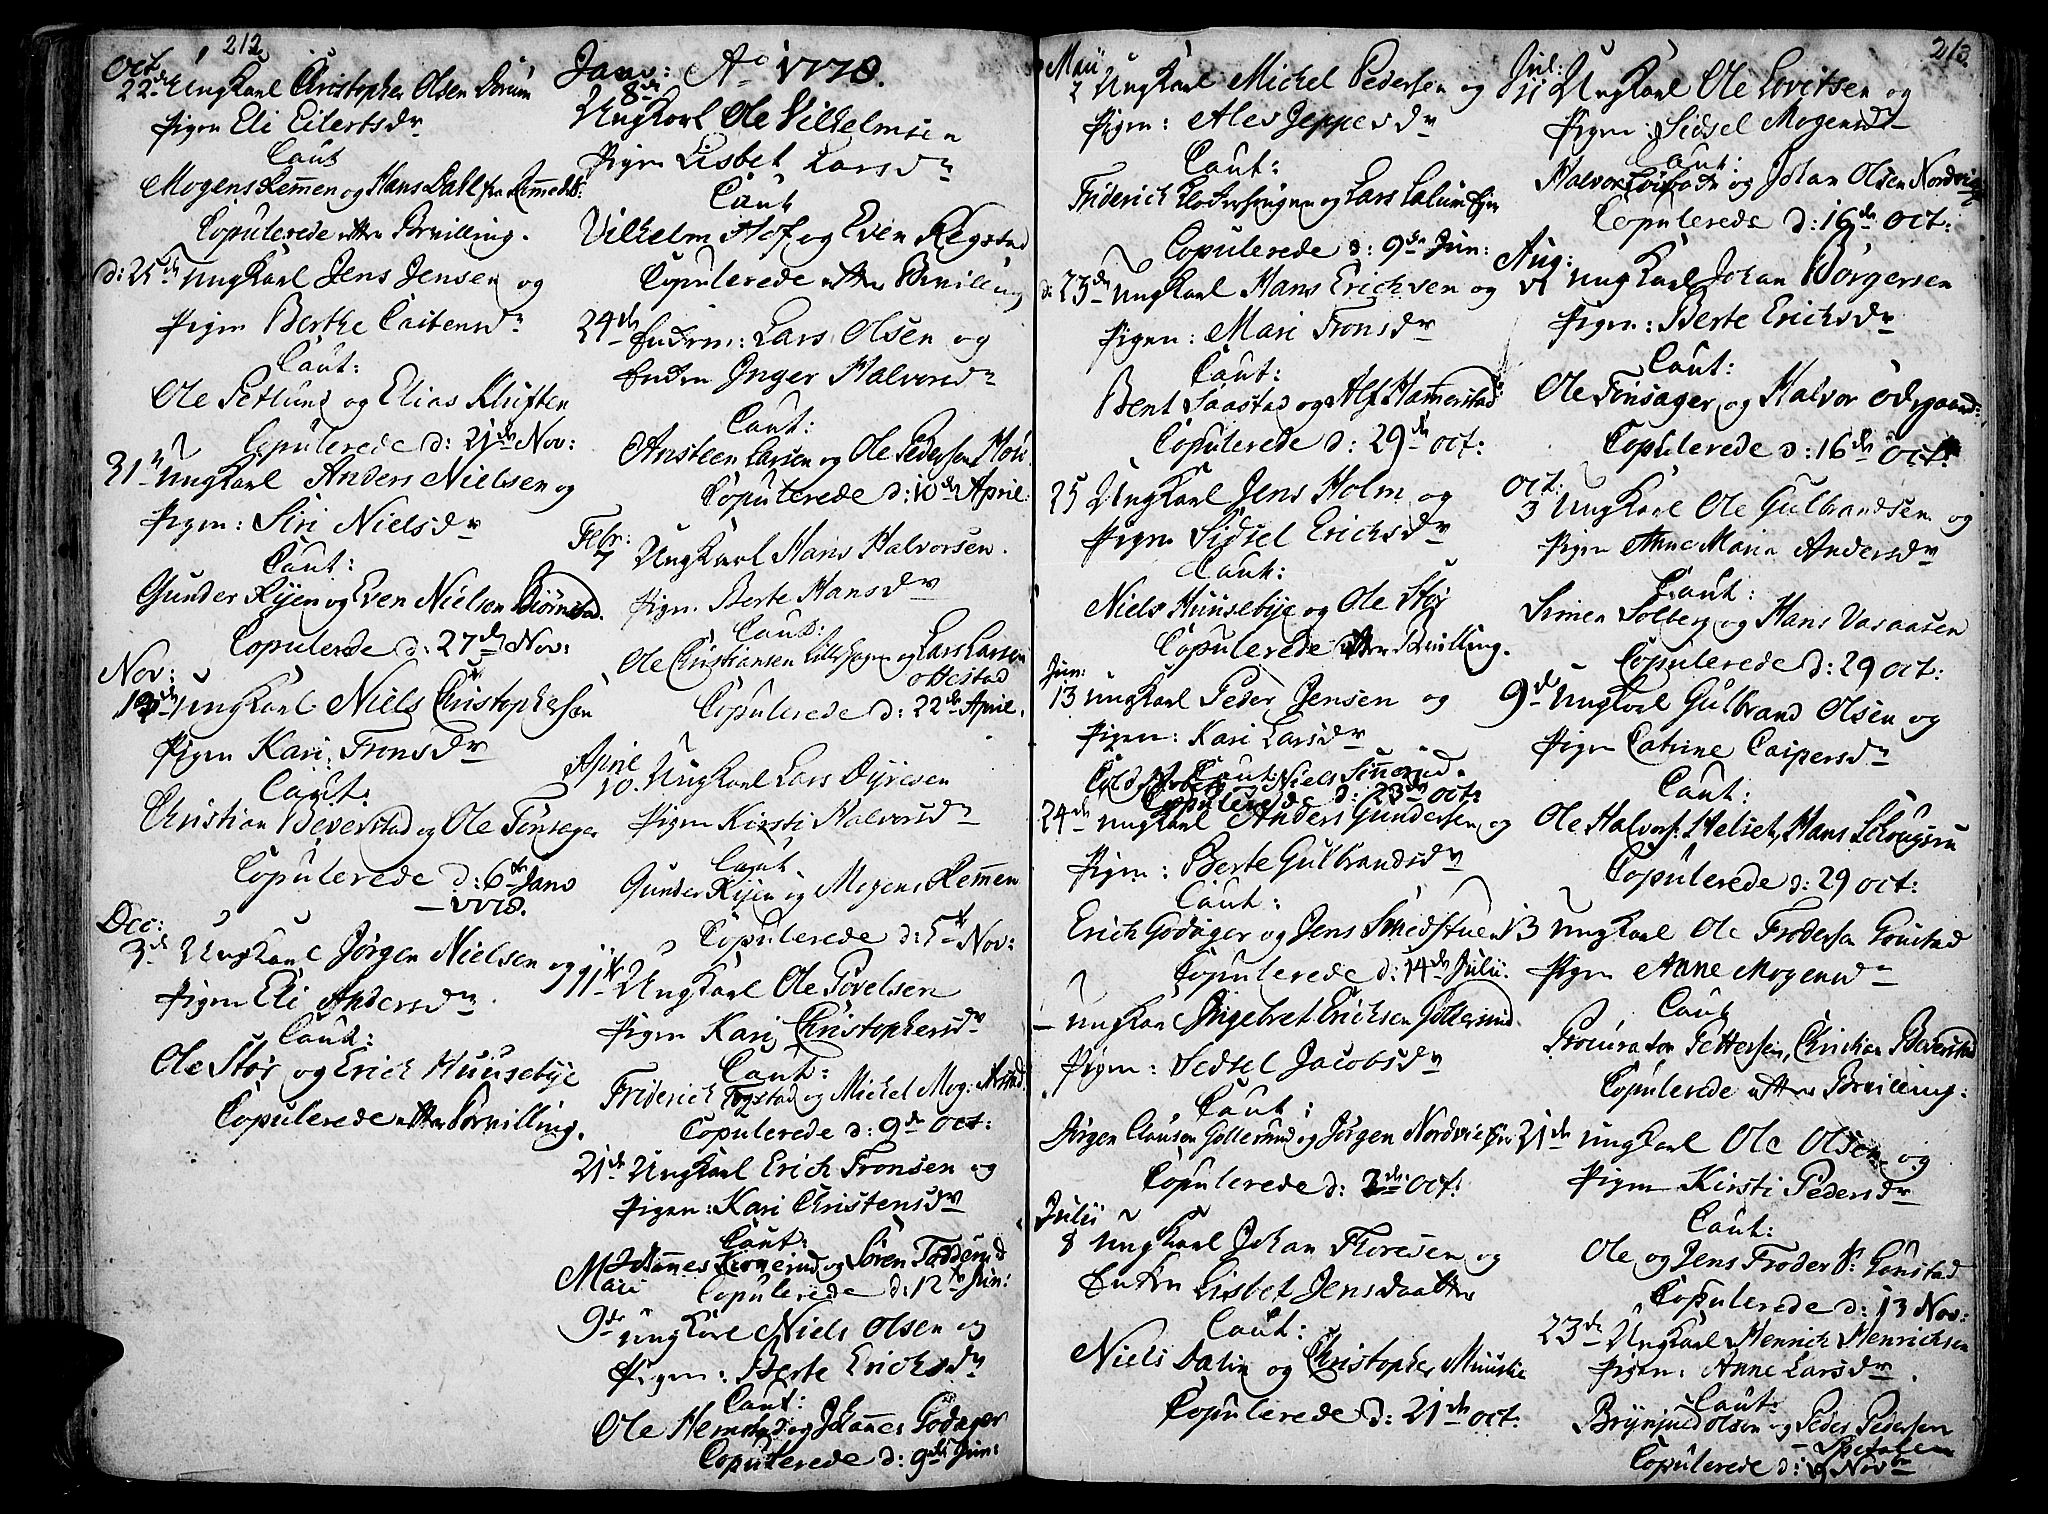 212
Oct
22de Ungkarl Christopher Olsen Dørum
Pigen Eli Eilertsdr
Caut
Mogens Remmen og Hans Dahl fra
Copulerede efter Bevilling.
d: 25de Ungkarl Jens Jensen og
Pigen Berthe Castensdr
Caut:
Ole Setlund og Elias Kluften
Copulerede d: 21de Nov:
31te Ungkarl Anders Nielsen og
Pigen: Siri Nielsdr
Caut:
Gunder Ryen og Even Nielsen Biørnstad.
Copulerede d: 27de Nov:
Nov:
Ungkarl Niels Christophersen
Pigen Kari Tronsdr
Caut:
Christian Beverstad og Ole Tønsager
Copulerede d: 6te Janv
1778.
Dec:
3de Ungkarl Jørgen Nielsen og
Pigen Eli Andersdr.
Caut:
Ole Stør og Erich Huusebye
Copulerede efter Bevilling.
Janv: Ao 1778.
8de
Ungkarl Ole Vilhelmsen
Pigen Lisbet Larsdr
Caut
Vilhelm Hof og Even Regstad
Copulerede efter Bevilling
24de Enkem: Lars Olsen og
Enken Inger Halvorsdr
Caut:
Ansteen Larsen og Ole Pedersen
Copulerede d: 10de April:
Febr:
7 Ungkarl Hans Halvorsen.
Pigen Berte Hansdr
Caut:
Ole Christiansen og Lars Larsen
Ottestad
Copulerede d: 22de April.
April
10. Ungkarl Lars Dyresen
Pigen Kirsti Halvorsdr
Caut
Gunder Ryen og Mogens Remmen
Copulerede d: 5te Nov:
11te Ungkarl Ole Povelsen
Pigen Kari Christophersdr
Caut:
Friderich Togstad og Michel Mog: Arstad.
Copulerede d: 9de Oct:
21de Ungkarl Erich Tronsen og
Pigen: Kari Christensdr
Caut:
Johannes og Søren
Copulerede d: 12te Jun:
Maii
9de Ungkarl Niels Olsen og
Pigen: Berte Erichsdr
Caut:
Ole Hemstad og Johannes Godager
Copulerede d: 9de Jun:
213
Maii
2 Ungkarl Michel Pedersen og
Pigen: Ales Jeppesdr
Caut:
Friderich og Lars Lalum
Copulerede d: 9de Jun:
d: 23de Ungkarl Hans Erichsen og
Pigen: Mari Tronsdr
Caut:
Bent Saastad og Alf Hammerstad
Copulerede d: 29de Oct:
25 Ungkarl Jens Holm og
Pigen Sidsel Erichsdr
Caut:
Niels Huusebye og Ole Stør
Copulerede efter Bevilling.
Jun:
13 Ungkarl Peder Jensen og
Pigen: Kari Larsdr
Caut: Niels
Copulerede d: 23de Oct:
24de Ungkarl Anders Gundersen og
Pigen: Berte Gulbrandsdr
Caut:
Erich Godager og Jens Smedstuen
Copulerede d: 14de Julii.
Ungkarl Ingebret Erichsen Gollerud.
Pigen: Sedsel Jacobsdr
Caut:
Jørgen Clausen Gollerud og Jørgen Nordvie
Copulerede d: 2de Oct:
Julii
8 Ungkarl Johan Floresen og
Enken Lisbet Jensdaatter
Caut:
Niels Dalin og Christopher
Copulerede d: 21de Oct:
Jul:
11 Ungkarl Ole Lovitsen og
Pigen: Sidsel Mogensdr
Caut:
Halvor og Johan Olsen Nordvie
Copulerede d: 16de Oct:
Aug:
Ungkarl Johan Børgersen
Pigen: Berte Erichsdr
Caut:
Ole Tønsager og Halvor Odegaard:
Copulerede d: 16de Oct:
Oct:
3 Ungkarl Ole Gulbrandsen og
Pigen Anne Maria Andersdr
Caut:
Simen Solberg og Hans Vasaasen
Copulerede d: 29 Oct:
9de Ungkarl Gulbrand Olsen og
Pigen Catrine Caspersdr
Caut:
Ole Halvors: Helset, Hans
Copulerede d: 29 Oct:
13 Ungkarl Ole Frodesen Gonstad
Pigen Anne Mogensdr
Caut
Procurator Pettersen, Christian Beverstad
Copulerede efter Bevilling:
21de Ungkarl Ole Olsen og
Pigen Kirsti Pedersdr
Caut:
Ole og Jens Froders: Gonstad
Copulerede d: 13 Nov:
23de Ungkarl Henrich Henrichsen
Pigen: Anne Larsdr.
Caut:
Brynjuel Olsen og Peder Pedersen
Copulerede d: 9 Novbr